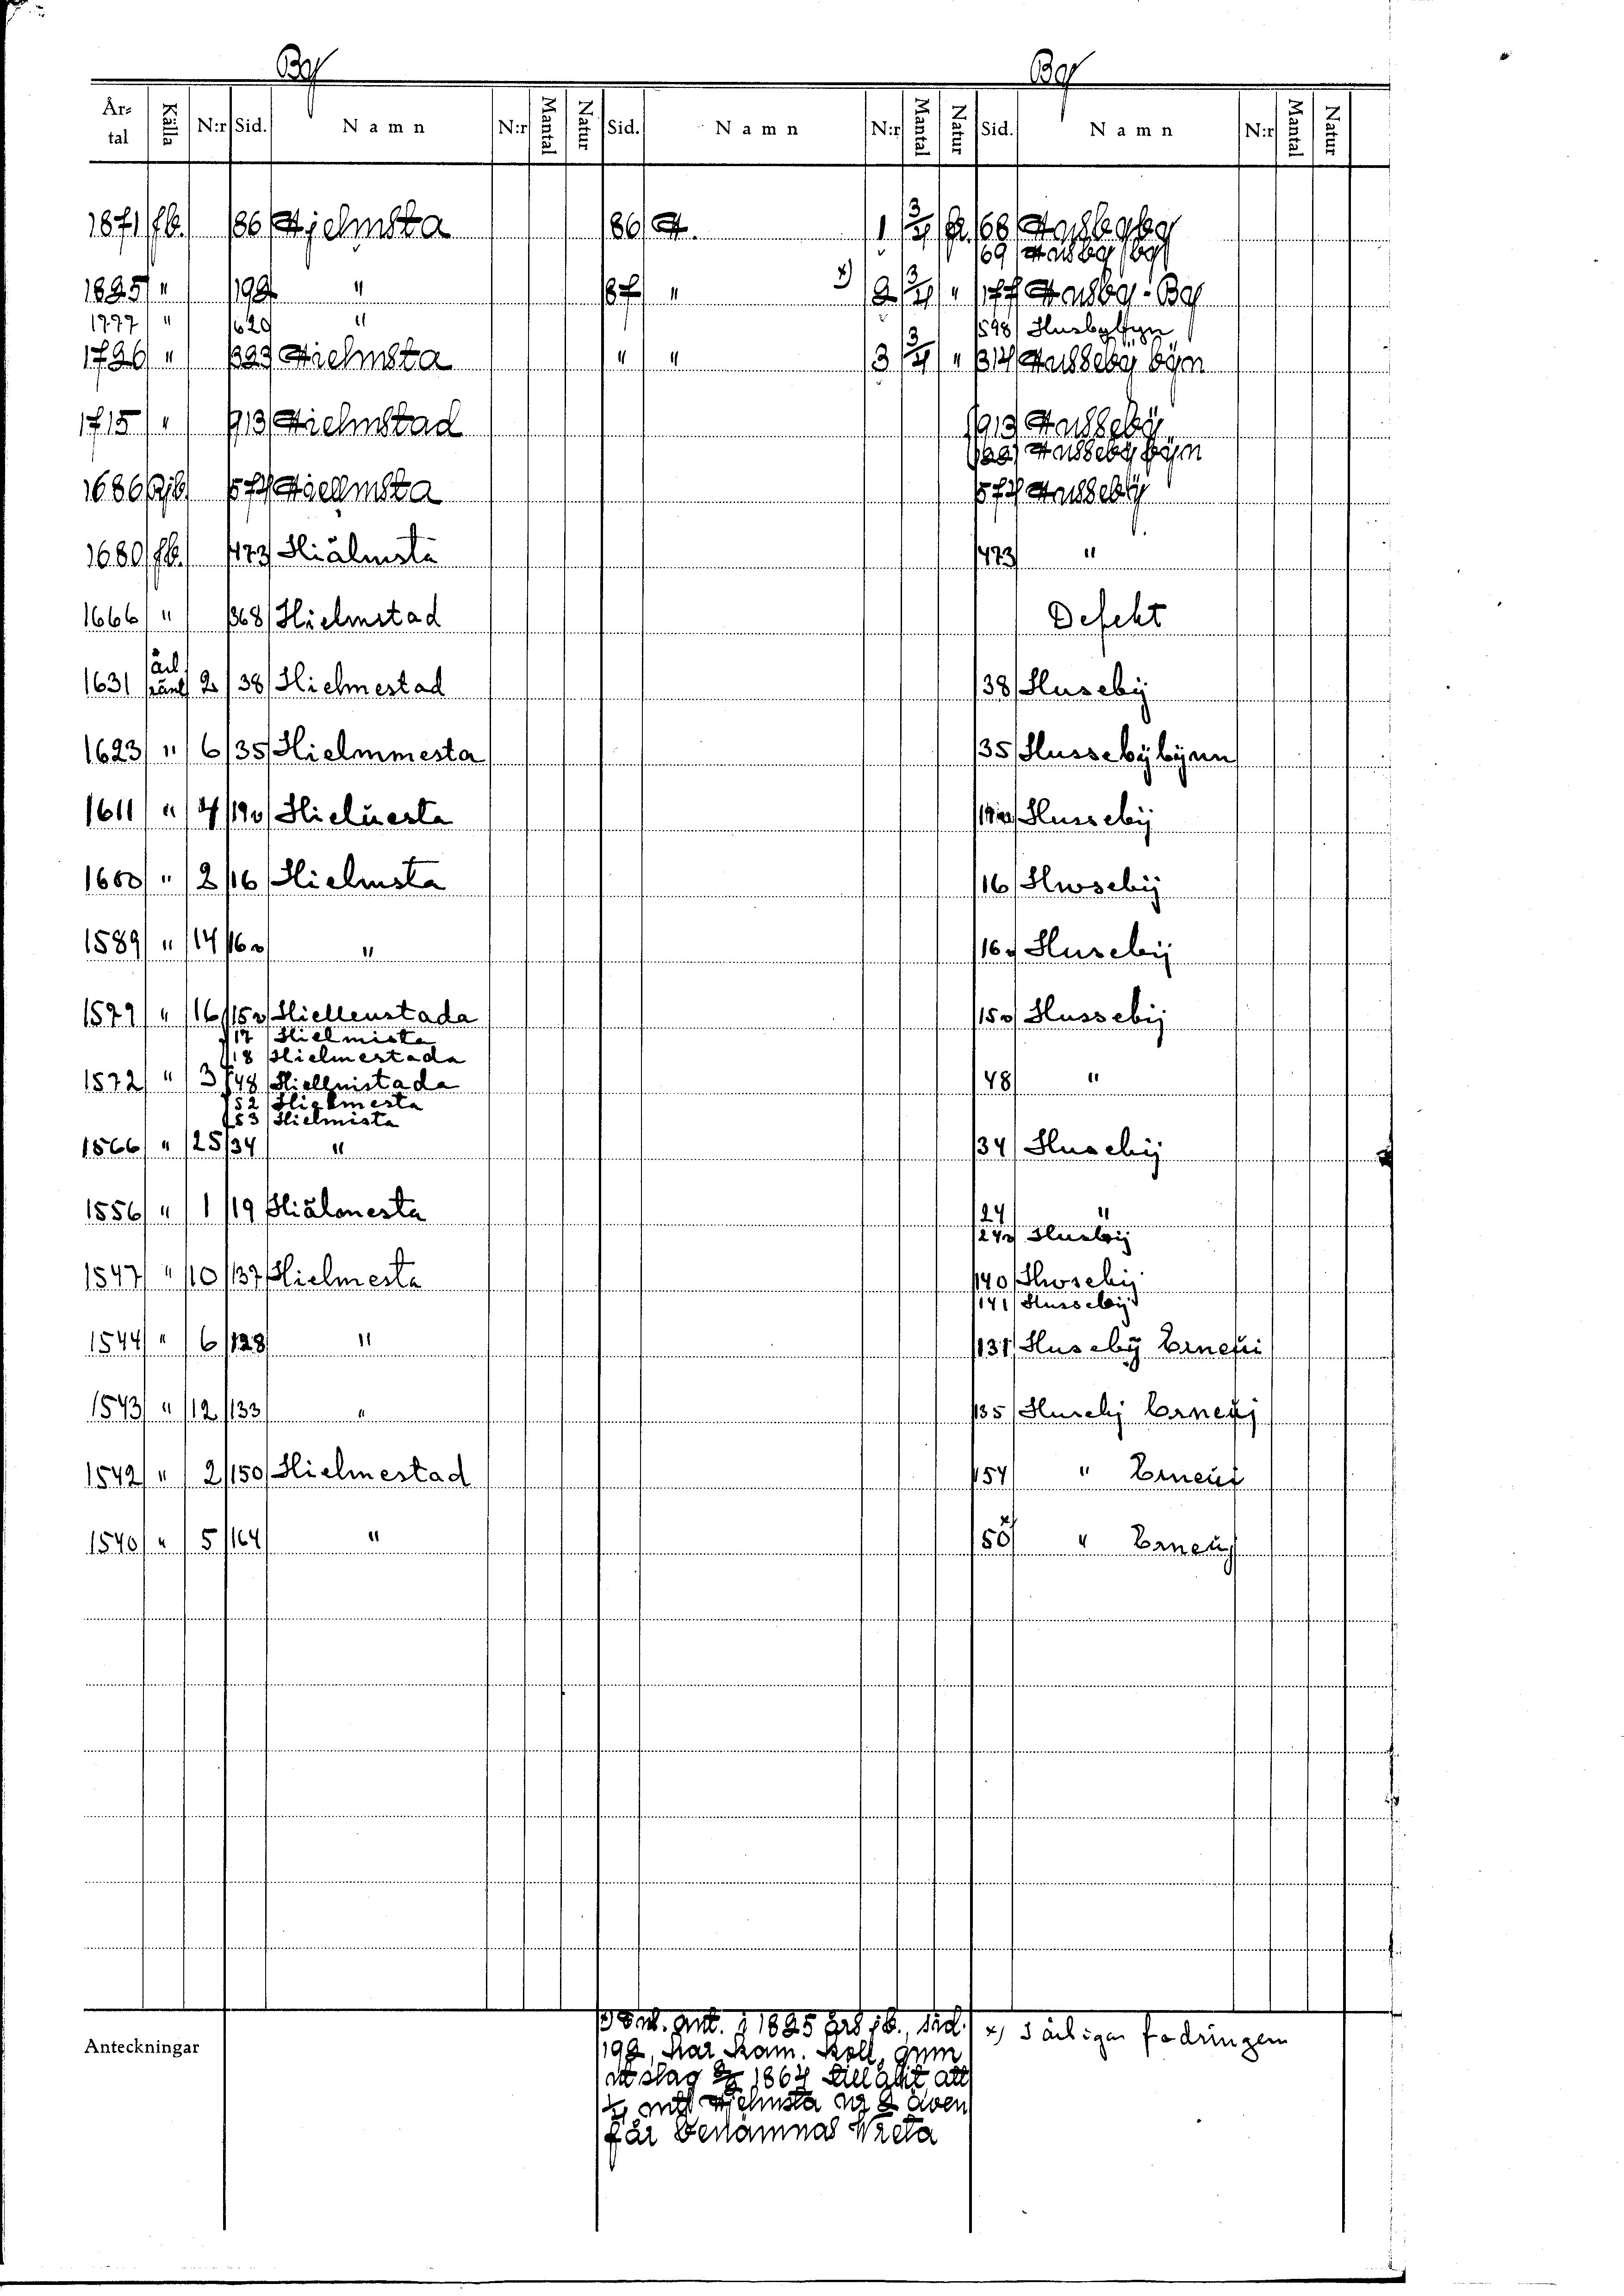 By By
Årtal Källa N:r Sid. Namn N:r Mantal Natur Sid. Namn N:r Mantal Natur Sid. Namn N:r Mantal Natur
1871 Jb. 86 Hjelmsta 86 H. 1 3/4 fr. 68 Husbyby
69 Husby by
1825 " 192 " 87 " x) 2 3/4 " 177 Husby-By
1777 " 620 " 598 Husbybyn
1726 " 323 Hielmsta " " 3 3/4 " 314 Husseby byn
1715 " 913 Hielmstad 913 Husseby
Hussebybyn
1686 Rjb. 574 Hiellmsta 574 Husseby
1680 Jb. 473 Hiälmsta 473 "
1666 " 368 Hielmstad Defekt
1631 årl. ränt 2 38 Hielmestad 38 Husebÿ
1623 " 6 35 Hielmmesta 35 Hussebÿbÿnn
1611 " 4 19v Hielmesta 19v Hussebÿ
1600 " 2 16 Hielmsta 16 Hwsebÿ
1589 " 14 16v " 16v Husebÿ
1579 " 16 15v Hiellmstada 15v Hussebÿ
17 Hielmista
18 Hielmestada
1572 " 3 48 Hiellmistada 48 "
52 Hielmesta
53 Hielmista
1566 " 25 34 " 34 Husebÿ
1556 " 1 19 Hiälmesta 24 "
24v Husbÿ
1547 " 10 137 Hielmesta 140 Hwsebÿ
141 Hussebÿ
1544 " 6 128 " 131 Husebÿ Erneüi
1543 " 12 133 " 135 Husebj Erneüj
1542 " 2 150 Hielmestad 154 " Erneüi
1540 " 5 164 " 50 x) " Erneüj
Anteckningar
x) Enl. ant. i 1825 års jb., sid.
192, har Kam. Koll. gnm
utslag 1864 tillåtit, att
1/4 mtl Hjelmsta nr 2 även
får benämnas Wreta
x) I årligen fodringen